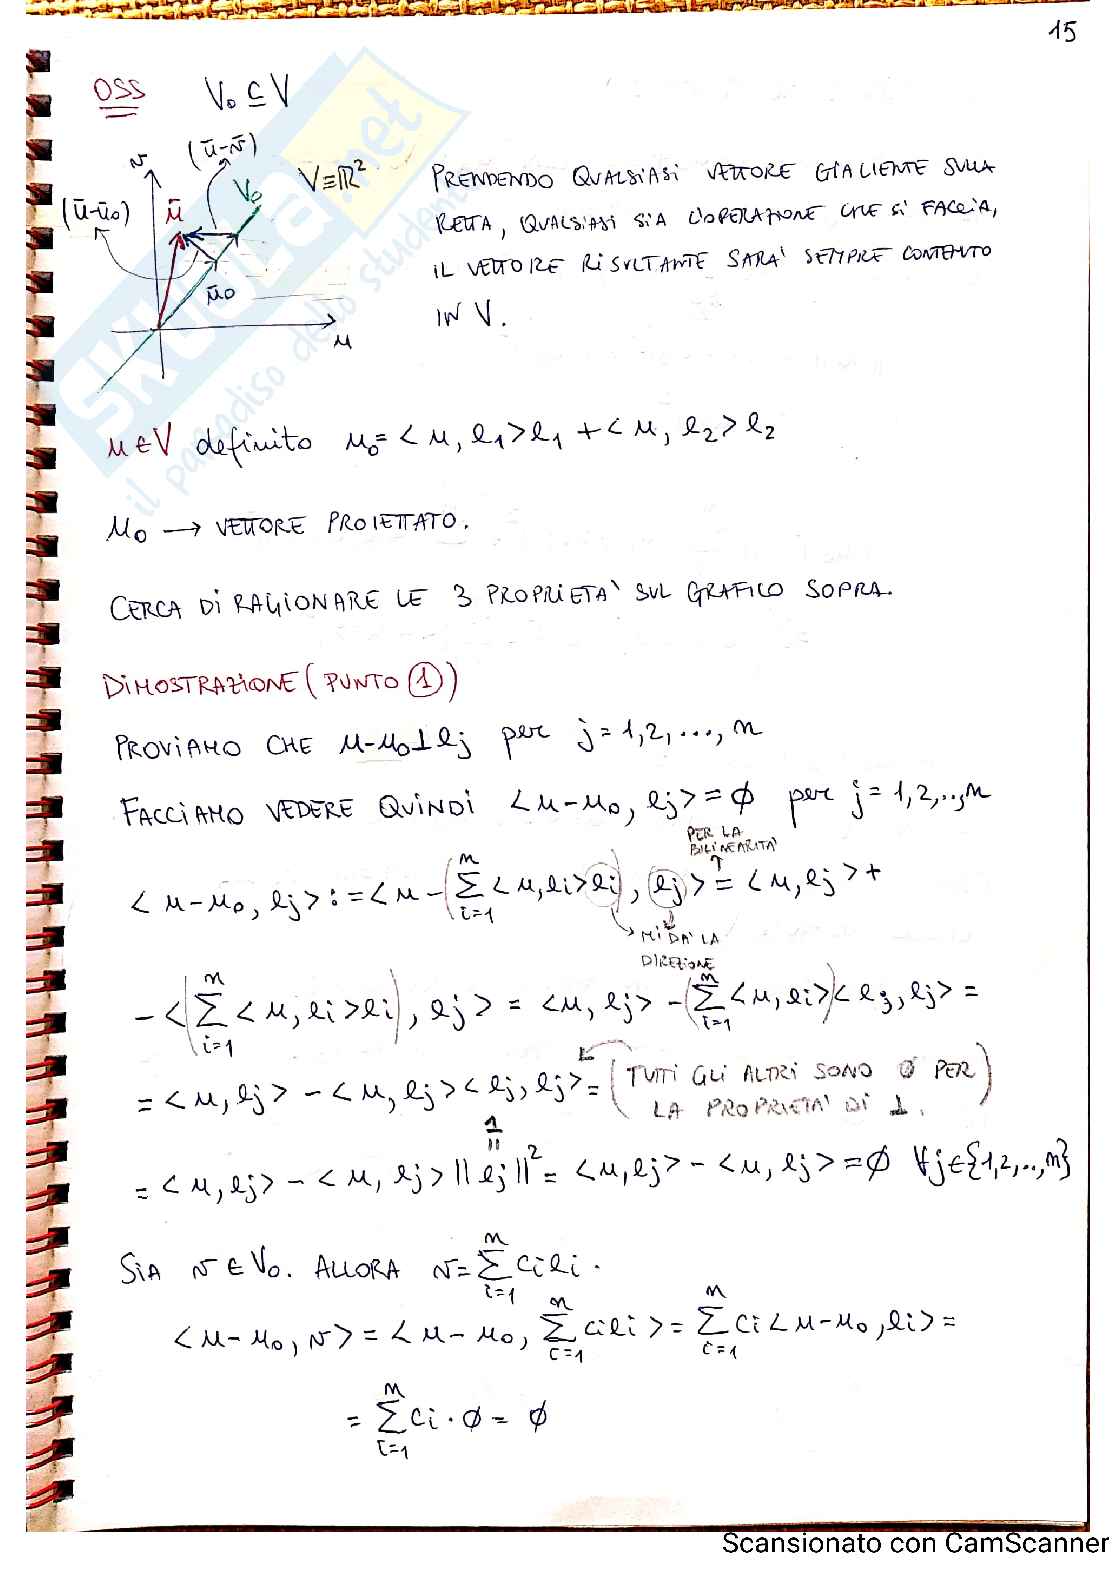 15
OSS V₀ ⊆ V
v (ū-v̄)
V₀ V≡ℝ²
(ū-ū₀) ū
ū₀
u
PRENDENDO QUALSIASI VETTORE GIACENTE SULLA
RETTA, QUALSIASI SIA L'OPERAZIONE CHE SI FACCIA,
IL VETTORE RISULTANTE SARA' SEMPRE CONTENUTO
IN V.
u∈V definito u₀ = <u, e₁>e₁ + <u, e₂>e₂
u₀ → VETTORE PROIETTATO.
CERCA DI RAGIONARE LE 3 PROPRIETA' SUL GRAFICO SOPRA.
DIMOSTRAZIONE (PUNTO ①)
PROVIAMO CHE u-u₀⊥ej per j=1,2,...,n
FACCIAMO VEDERE QUINDI <u-u₀, ej>=∅ per j=1,2,..,n
PER LA
BILINEARITA'
<u-u₀, ej> := <u-(∑ᵢ₌₁ⁿ <u,ei>ei), ej> = <u,ej>+
MI DA' LA
DIREZIONE
-<(∑ᵢ₌₁ⁿ <u,ei>ei), ej> = <u, ej> -(∑ᵢ₌₁ⁿ <u,ei>)<e₃,ej> =
= <u, ej> - <u, ej><ej, ej> = (TUTTI GLI ALTRI SONO ∅ PER
LA PROPRIETA' DI ⊥.)
1
=
= <u, ej> - <u, ej>||ej||² = <u,ej> - <u, ej> = ∅ ∀j∈{1,2,..,n}
SIA v∈V₀. ALLORA v=∑ᵢ₌₁ⁿ ciei.
<u-u₀, v> = <u-u₀, ∑ᵢ₌₁ⁿ ciei> = ∑ᵢ₌₁ⁿ ci<u-u₀,ei> =
= ∑ᵢ₌₁ⁿ ci·∅ = ∅
SKUOLA.net
il paradiso dello studente
Scansionato con CamScanner